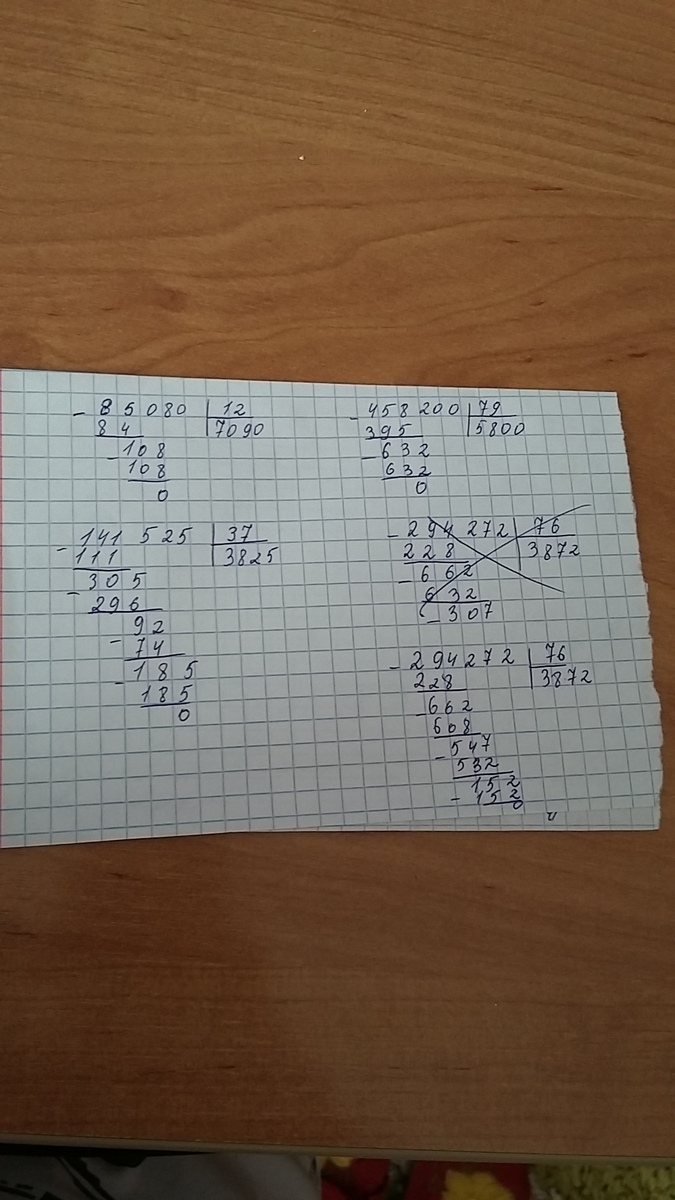 - 85080 | 12
84 | 7090
- 108
108
0
- 458200 | 79
395 | 5800
- 632
632
0
- 141 525 | 37
111 | 3825
- 305
296
- 92
74
- 185
185
0
- 294 272 | 76
228 | 3872
- 662
632
- 307
- 294272 | 76
228 | 3872
- 662
608
- 547
532
- 152
152
0